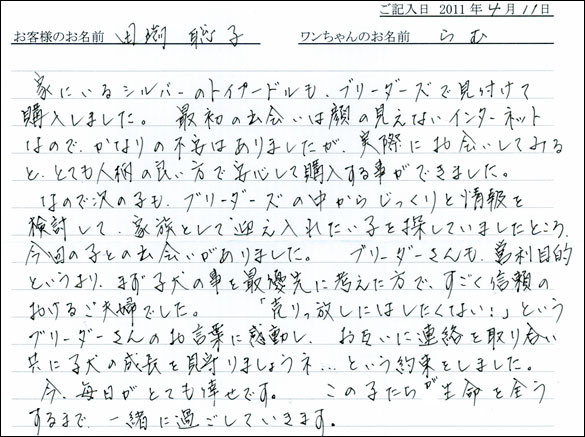 ご記入日 2011年4月11日
お客様のお名前 田淵 聡子 ワンちゃんのお名前 らむ
家にいるシルバーのトイプードルも、ブリーダーズで見付けて
購入しました。 最初の出会いは顔の見えないインターネット
なので、かなりの不安はありましたが、実際にお会いしてみる
と、とても人柄の良い方で安心して購入する事ができました。
なので次の子も、ブリーダーズの中からじっくりと情報を
検討して、家族として迎え入れたい子を探していましたところ、
今回の子との出会いがありました。 ブリーダーさんも、営利目的
というより、まず子犬の事を最優先に考えた方で、すごく信頼の
おけるご夫婦でした。 「売りっ放しにはしたくない!」という
ブリーダーさんのお言葉に感動し、お互いに連絡を取り合い
共に子犬の成長を見守りましょうネ…という約束をしました。
今、毎日がとても倖せです。 この子たちが生命を全う
するまで、一緒に過ごしていきます。